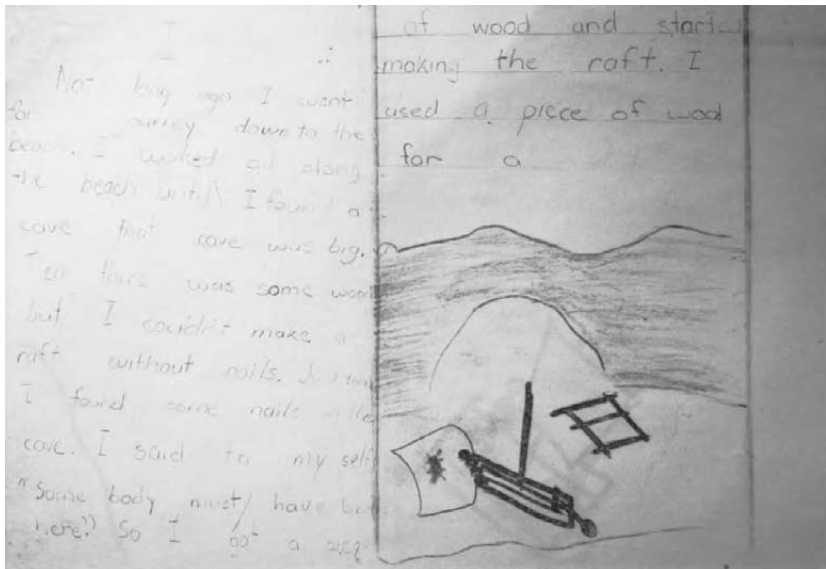 I
Not long ago I went
for journey down to the
beach. I walked all along
the beach until I found a
cave that cave was big.
there was some wood
but I couldn't make a
raft without nails.
I found some nails in the
cave. I said to my self
"Some body must have
here!" So I got a
of wood and started
making the raft. I
used a piece of wood
for a